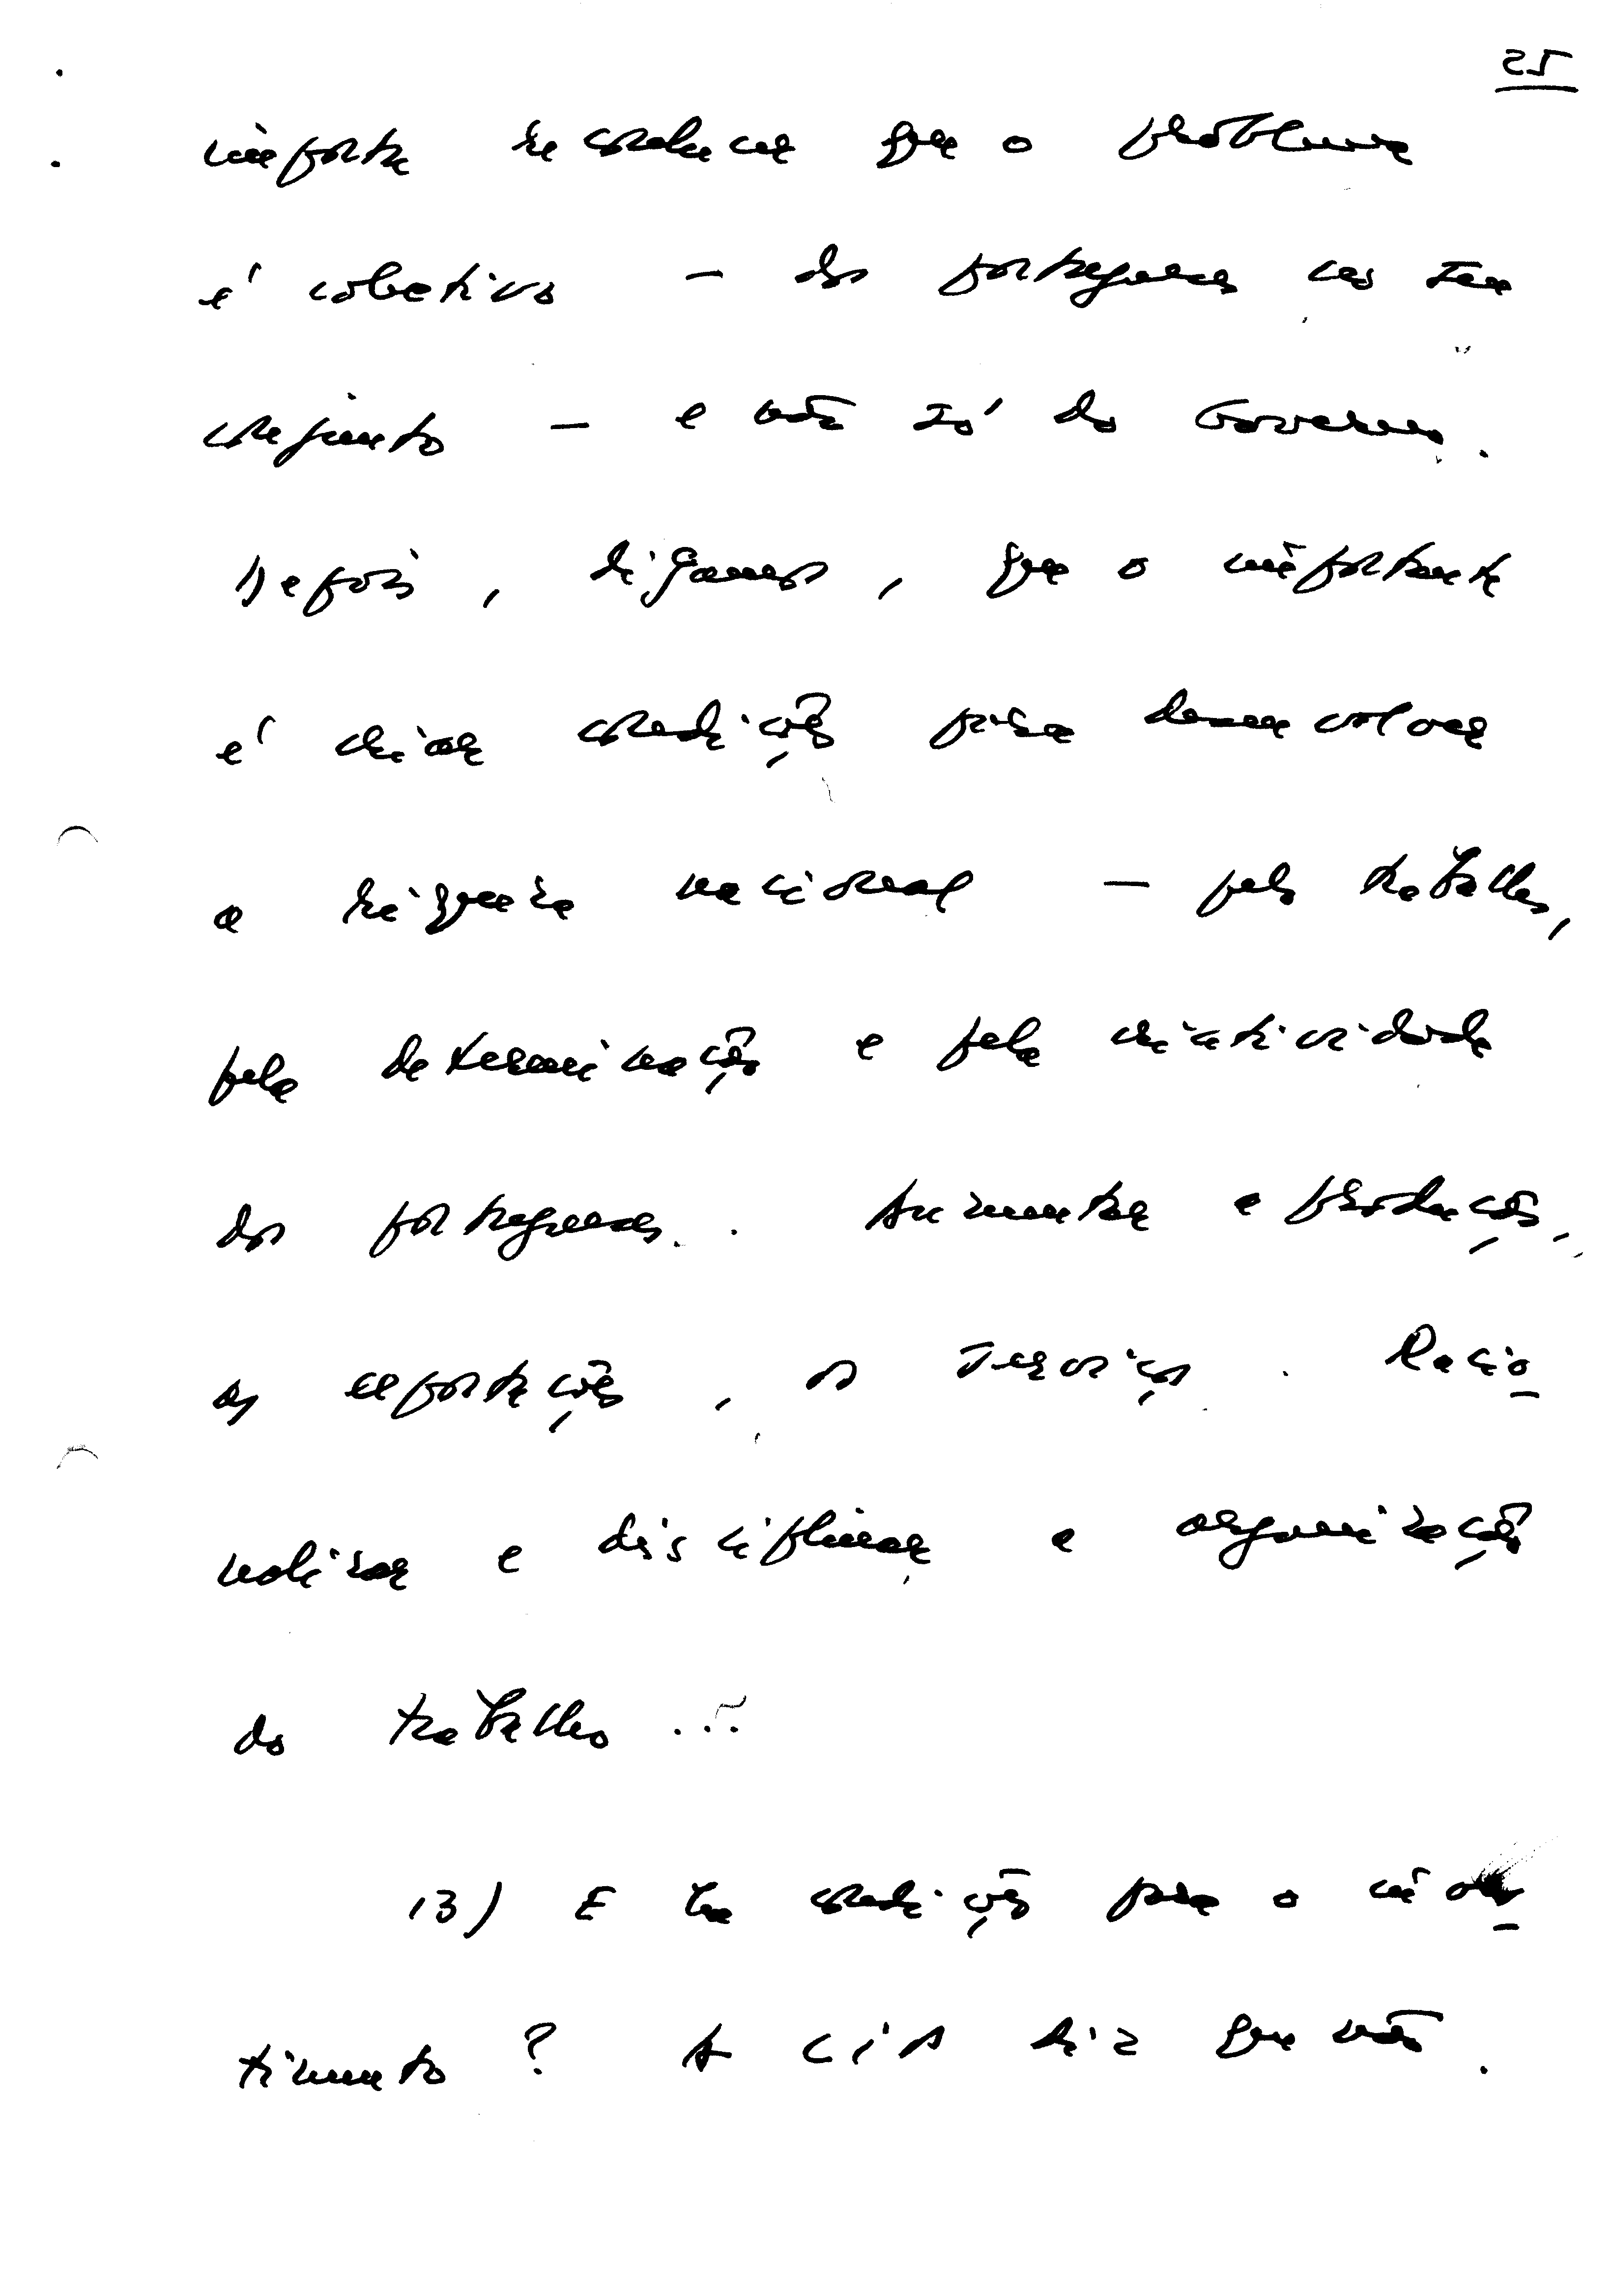 25
importa reconhecer que o problema
é colectivo - dos portugueses no seu
conjunto - e não só do Governo.
Depois, digamos, que o importante
é criar condições para desenvolver
a riqueza nacional - pelo trabalho,
pela determinação e pela criatividade
dos portugueses. Aumentar a produção,
as exportações, os serviços. Racio
nalizar e disciplinar a organização
do trabalho...
13) E há condições para o inves
timento? A CIP diz que não.